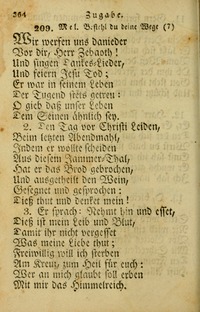 264 Zugabe.
209. Mel. Befiehl du deine Wege (7)
Wir werfen uns danieder
Vor dir, Herr Zebaoth!
Und singen Dankes-Lieder,
Und feiern Jesu Tod;
Er war in seinem Leben
Der Tugend stets getreu:
O gieb daß unser Leben
Dem Seinen ähnlich sey.
2. Den Tag vor Christi Leiden,
Beim letzten Abendmahl,
Indem er wollte scheiden
Aus diesem Jammer-Thal,
Hat er das Brod gebrochen,
Und ausgetheilt den Wein,
Gesegnet und gesprochen:
Dieß thut und denket mein!
3. Er sprach: Nehmt hin und esset,
Dieß ist mein Leib und Blut,
Damit ihr nicht vergesset
Was meine Liebe thut;
Freiwillig will ich sterben
Am Kreuz, zum Heil für euch:
Wer an mich glaubt soll erben
Mit mir das Himmelreich.